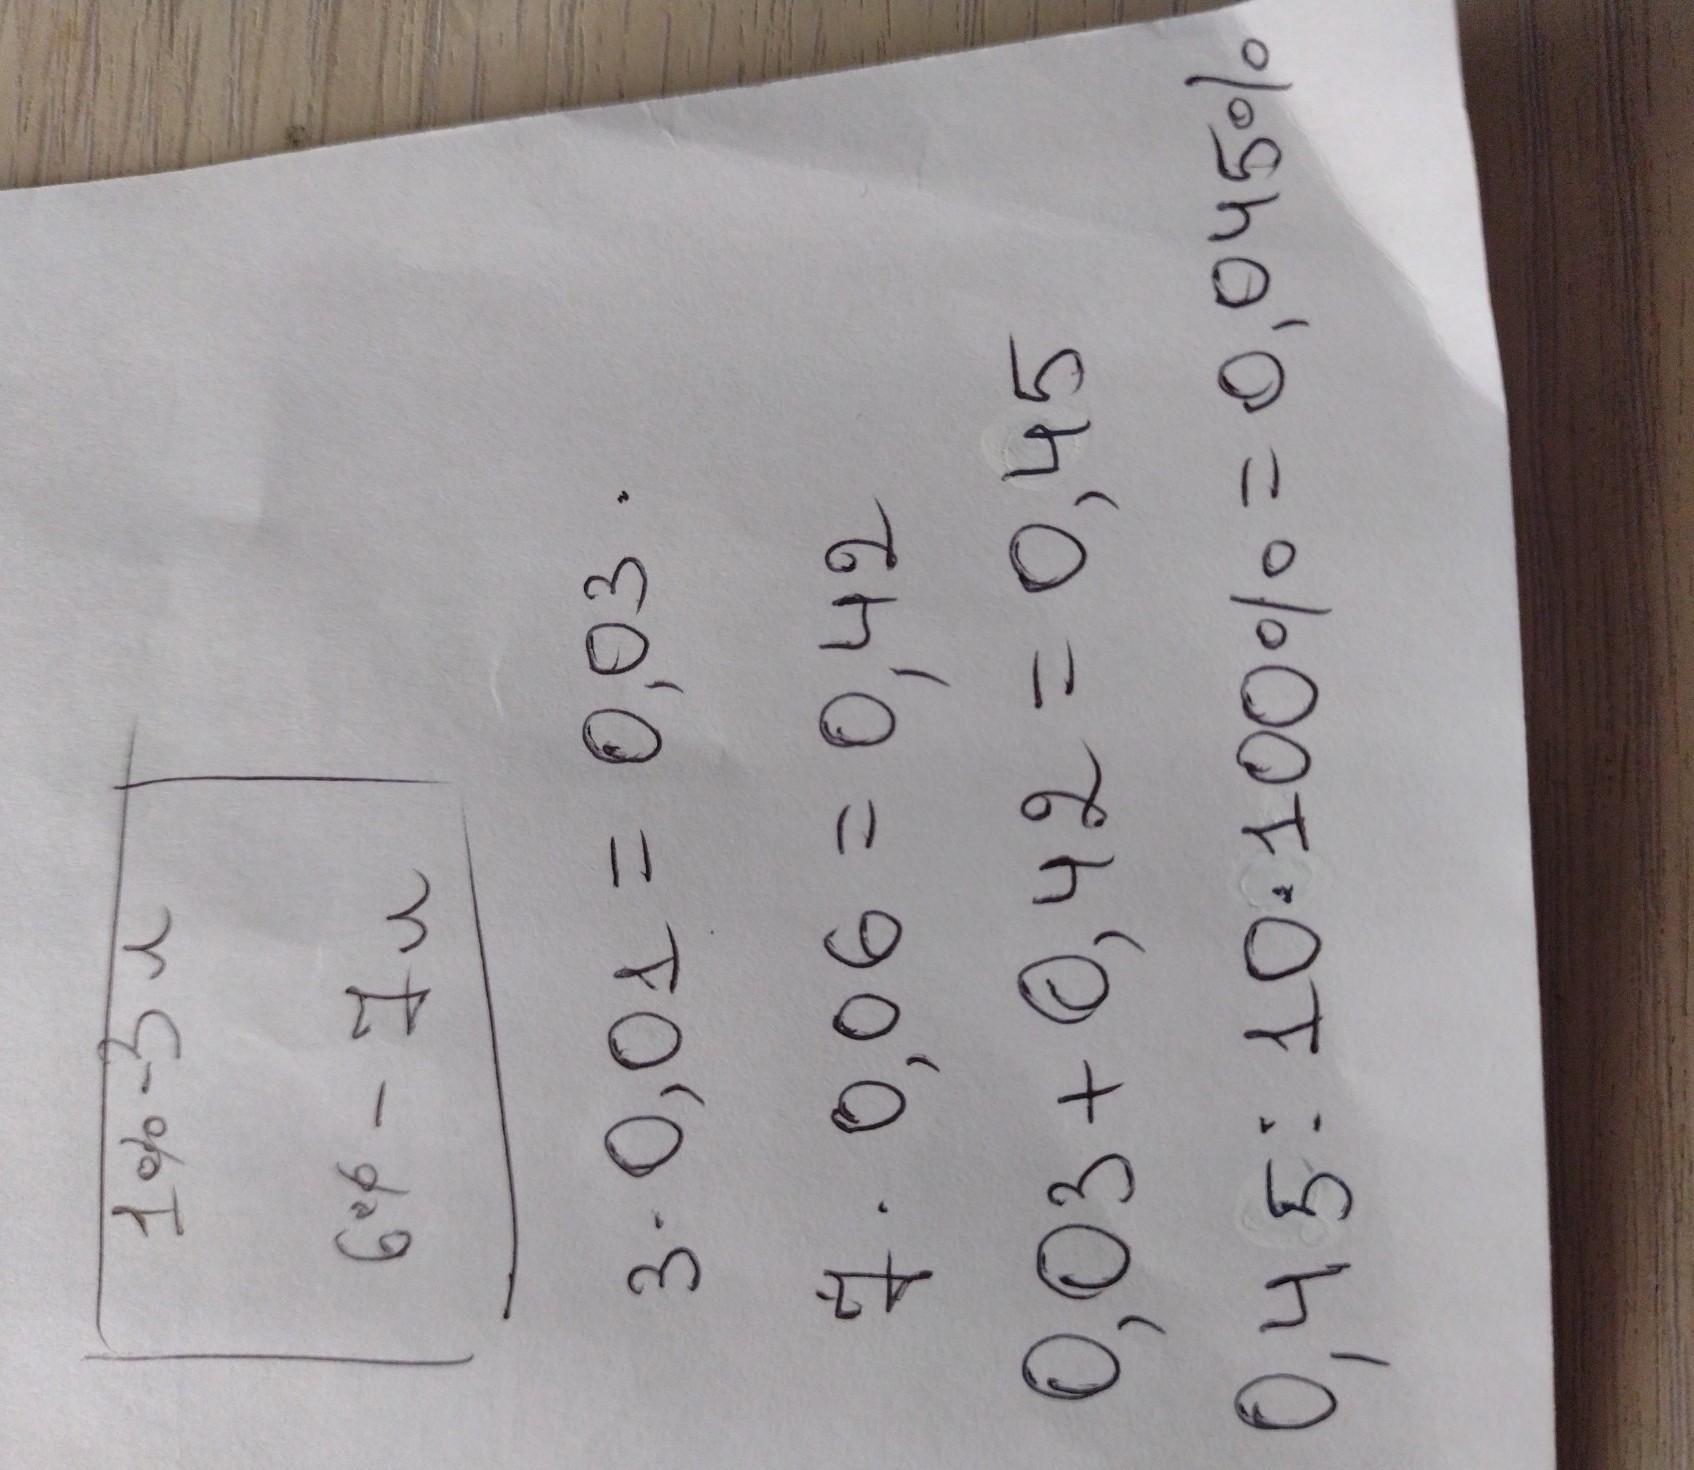 1% - 3 л
6% - 7 л
3 · 0,01 = 0,03.
7 · 0,06 = 0,42
0,03 + 0,42 = 0,45
0,45 : 10 · 100% = 0,045%